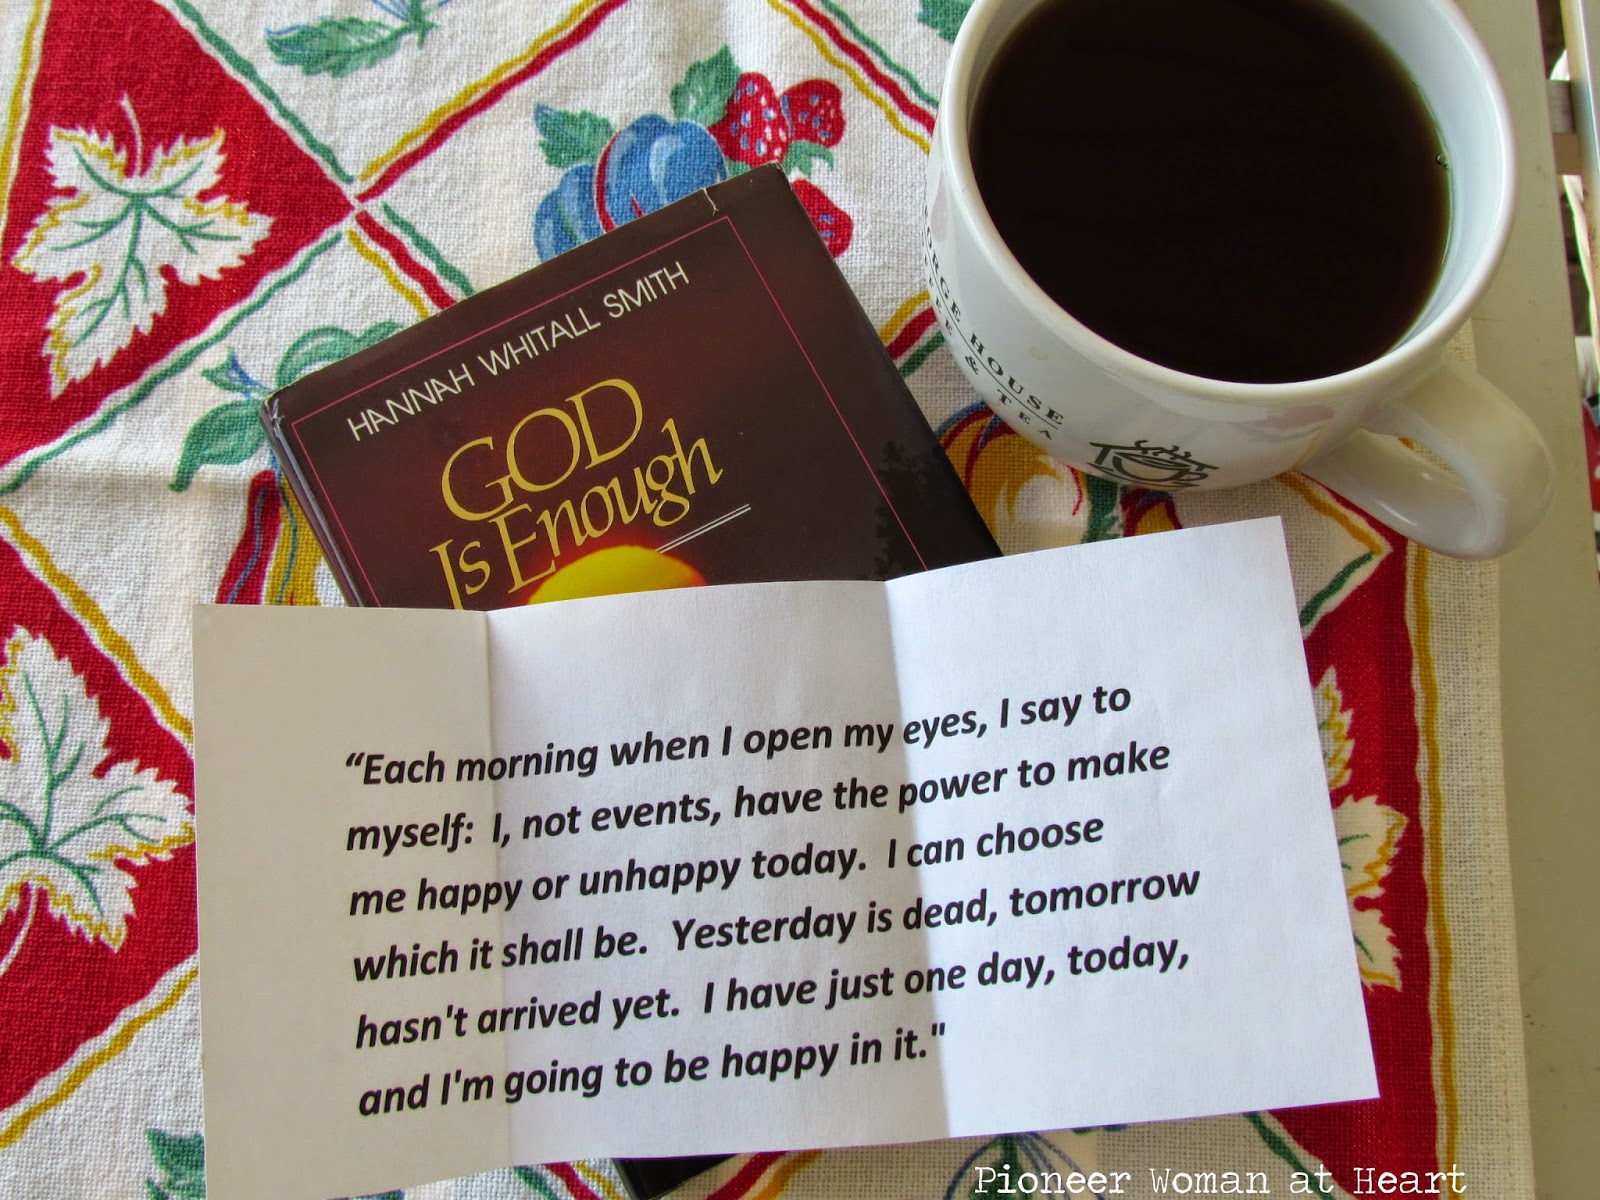 HANNAH WHITALL SMITH
GOD
Is Enough
HOUSE
& TEA
“Each morning when I open my eyes, I say to
myself:  I, not events, have the power to make
me happy or unhappy today.  I can choose
which it shall be.  Yesterday is dead, tomorrow
hasn't arrived yet.  I have just one day, today,
and I'm going to be happy in it."
Pioneer Woman at Heart